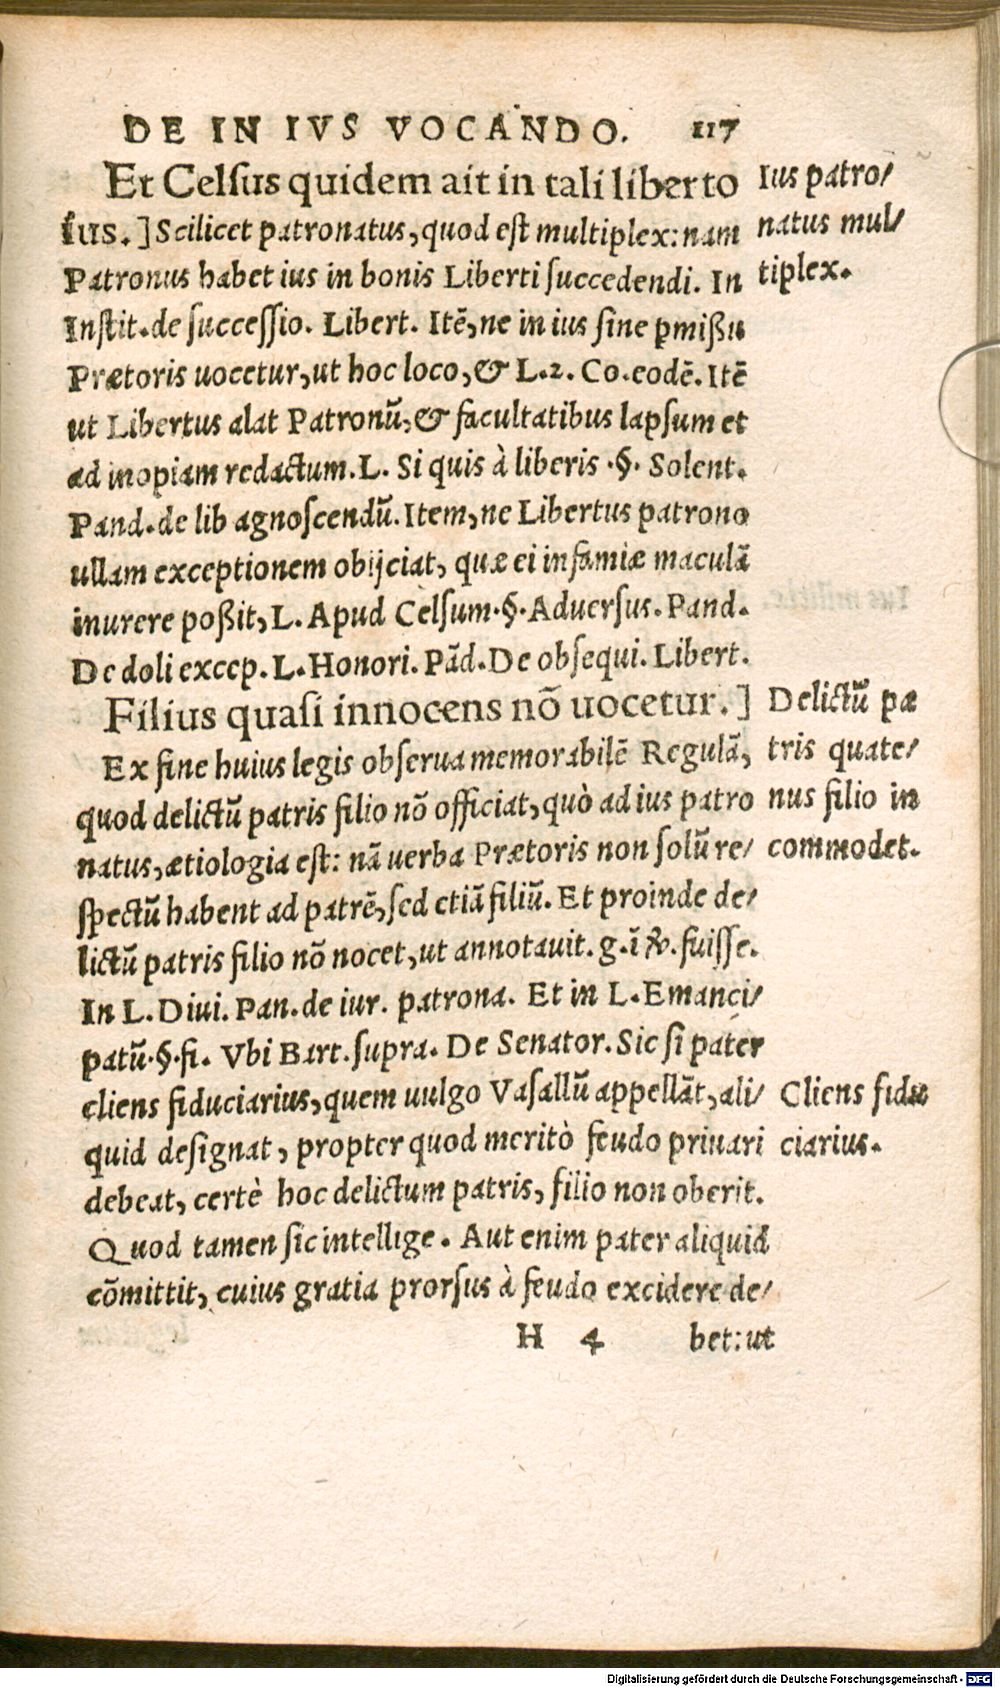 DE IN IVS VOCANDO. 117
Et Celsus quidem ait in tali liberto
ius.] Scilicet patronatus, quod est multiplex: nam
Patronus habet ius in bonis Liberti succedendi. In
Instit. de successio. Libert. Itē, ne in ius sine ꝑmißu
Prætoris uocetur, ut hoc loco, & L. 2. Co. eodē. Itē
ut Libertus alat Patronū, & facultatibus lapsum et
ad inopiam redactum. L. Si quis à liberis .§. Solent.
Pand. de lib agnoscendū. Item, ne Libertus patrono
ullam exceptionem obijciat, quæ ei infamiæ maculā
inurere poßit, L. Apud Celsum .§. Aduersus. Pand.
De doli excep. L. Honori. Pād. De obsequi. Libert.
Filius quasi innocens nō uocetur.]
Ex fine huius legis obserua memorabilē Regulā,
quod delictū patris filio nō officiat, quò ad ius patro
natus, ætiologia est: nā uerba Prætoris non solū re/
spectū habent ad patrē, sed etiā filiū. Et proinde de/
lictū patris filio nō nocet, ut annotauit. g. ī fuisse.
In L. Diui. Pan. de iur. patrona. Et in L. Emanci/
patū .§. fi. Vbi Bart. supra. De Senator. Sic si pater
cliens fiduciarius, quem uulgo Vasallū appellāt, ali/
quid designat, propter quod meritò feudo priuari
debeat, certè hoc delictum patris, filio non oberit.
Quod tamen sic intellige. Aut enim pater aliquid
cōmittit, cuius gratia prorsus à feudo excidere de/
H 4 bet: ut
Ius patro/
natus mul/
tiplex.
Delictū pa
tris quate/
nus filio in
commodet.
Cliens fidu
ciarius.
Digitalisierung gefördert durch die Deutsche Forschungsgemeinschaft - DFG